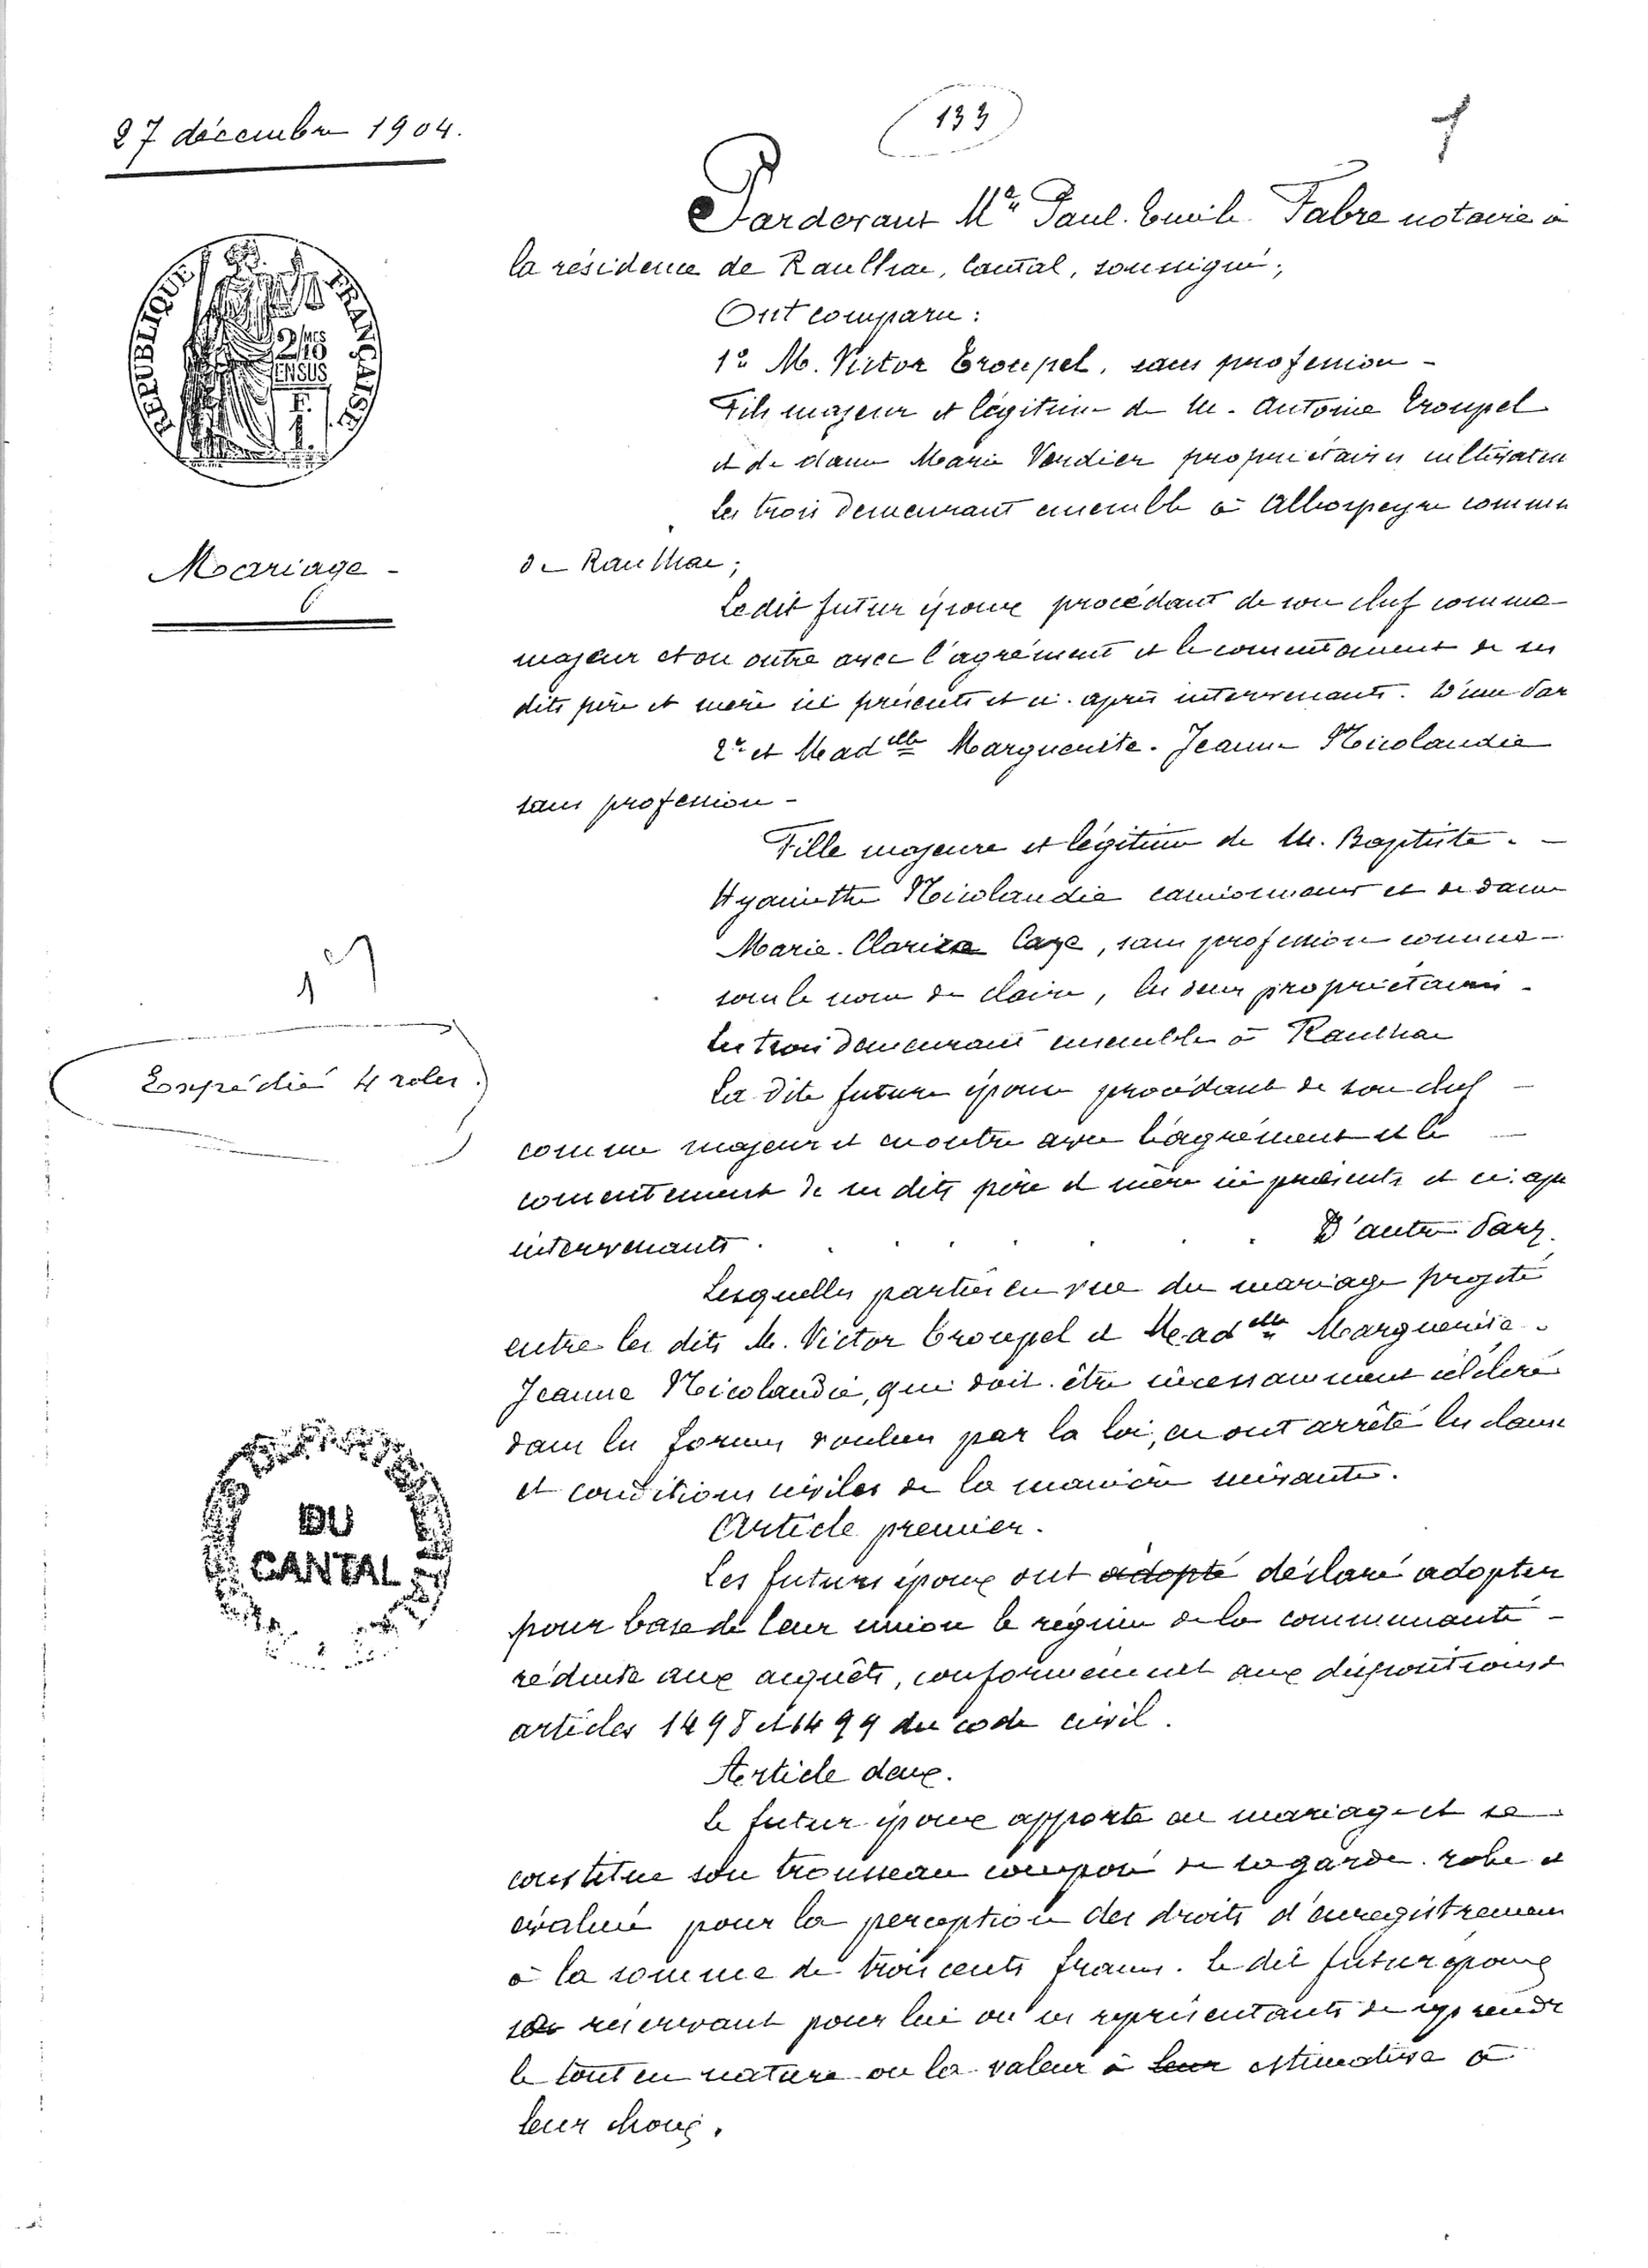 27 décembre 1904.
133
1
Pardevant Me Paul. Emile Fabre notaire à
la résidence de Raulhac, Cantal, soussigné;
REPUBLIQUE FRANÇAISE
2/10
EN SUS
Ont comparu:
1° M. Victor Troupel, sans profession -
Fils majeur et légitime de M. Antoine Troupel
et de dame Marie Verdier propriétaires cultivateu
Les trois demeurant ensemble à Albospeyre commun
Mariage -
de Raulhac;
Ledit futur époux procédant de son chef comme
majeur et en outre avec l'agrément et le consentement de ses
dits père et mère ici présents et ci-après intervenants. D'une Par
2° et Madelle Marguerite. Jeanne Nicolaudie
sans profession -
Fille majeure et légitime de M. Baptiste. -
Hyacinthe Nicolaudie camionneur et de dame
Marie. Clarisse Caze, sans profession connue -
sous le nom de Claire, les deux propriétaires -
Les trois demeurant ensemble à Raulhac
Expédié 4 roles.
La dite future épouse procédant de son chef -
comme majeure et en outre avec l'agrément et le -
consentement de ses dits père et mère ici présents et ci-apr
intervenants . . . . . . . D'autre Part.
Lesquelles parties en vue du mariage projeté
entre les dits M. Victor Troupel et Madelle Marguerite -
Jeanne Nicolaudie, qui doit être incessamment célébré
dans les formes voulues par la loi, en ont arrêté les clause
et conditions civiles de la manière suivante.
DU
CANTAL
Article premier.
Les futurs époux ont adopté déclaré adopter
pour base de leur union le régime de la communauté -
réduite aux acquêts, conformément aux dispositions d
articles 1498 et 1499 du code civil.
Article deux.
Le futur époux apporte au mariage et se
constitue son trousseau composé de sa garde. robe et
évalué pour la perception des droits d'enregistremen
à la somme de trois cents francs. Le dit futur époux
se réservant pour lui ou ses représentants de reprendr
le tout en nature ou la valeur à leur estimative à
leur choix.